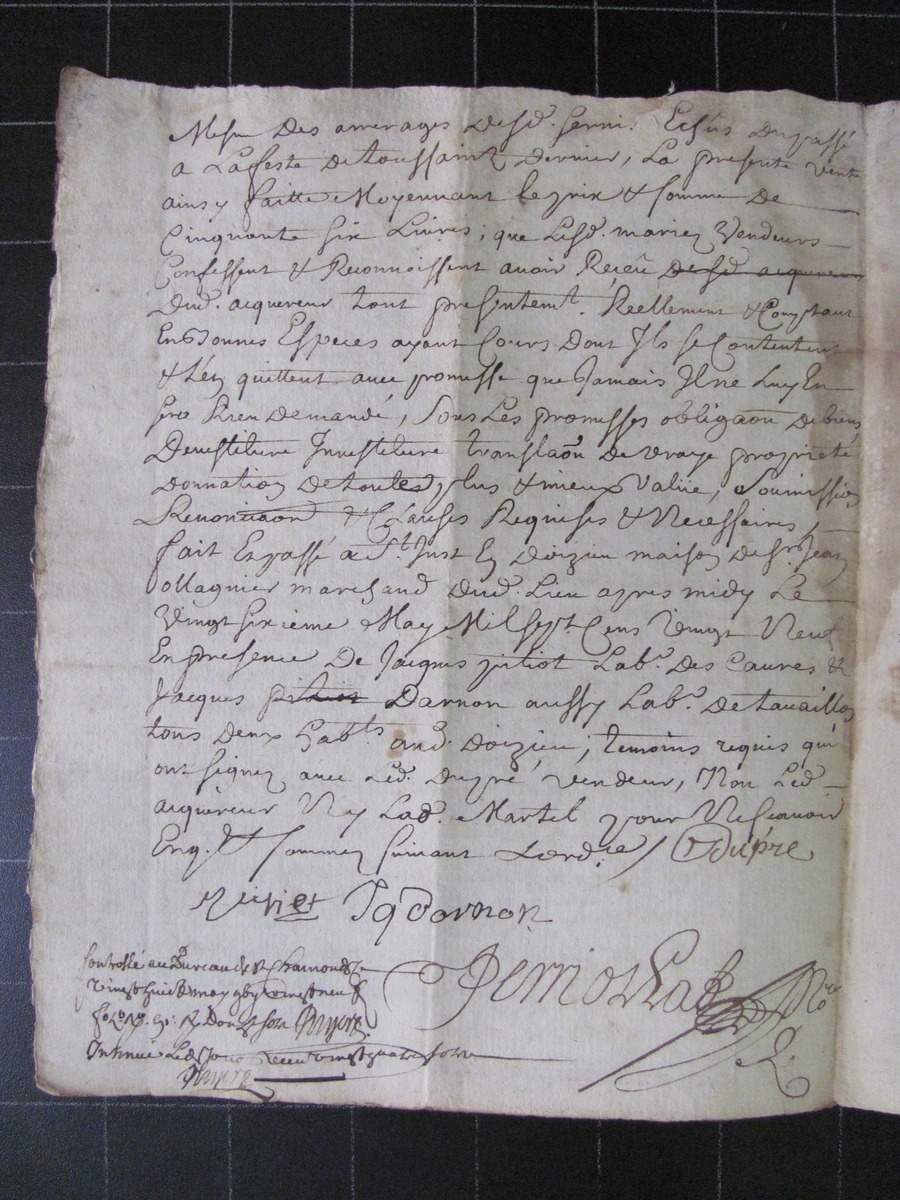 Mesme Des arrerages Desd. servis Echus Du passé
a La feste de toussaintz Dernier, La presente vente
ainsy faitte Moyennant le prix & somme De
Cinquante six Livres; que Lesd. mariez Vendeurs
Confessent & Reconnoissent avoir Receu desd acquereurs
Dud. acquereur tout presentemt. Reellement & Comptant
En Bonnes Especes ayant Cours Dont Ils se Contentent
& L'en quittent avec promesse que Jamais Il ne Luy En
sera Rien Demandé, Sous Les promesses obligaon de biens
Devestiture Investiture translaon De vraye proprieté
Donnation De toutes plus & mieux Value, Soumission
Renonciaon & Clauses Requises & Necessaires,
fait Et passé a St. Just En Doizieu maison de Sr. Jean
ollagnier marchand Dud. Lieu apres midy Le
Vingt sixieme May Mil sept Cens Vingt Neuf
En presence De Jacques piliot Labr. Des Caures &
Jacques piliot Darnon aussy Labr. De tavaillon
tous Deux habts. aud. Doizieu, temoins requis qui
ont signez avec Led. Dupré vendeur, Non Led
acquereur Ny Lad. Martel pour Ne scavoir
Enq. & sommez suivant Lordce / Dupre
Jq darnon
Controllé au Bureau de St Chamond Le
vingt huit may
Insinué Led Jour Receu vingt quatre sols